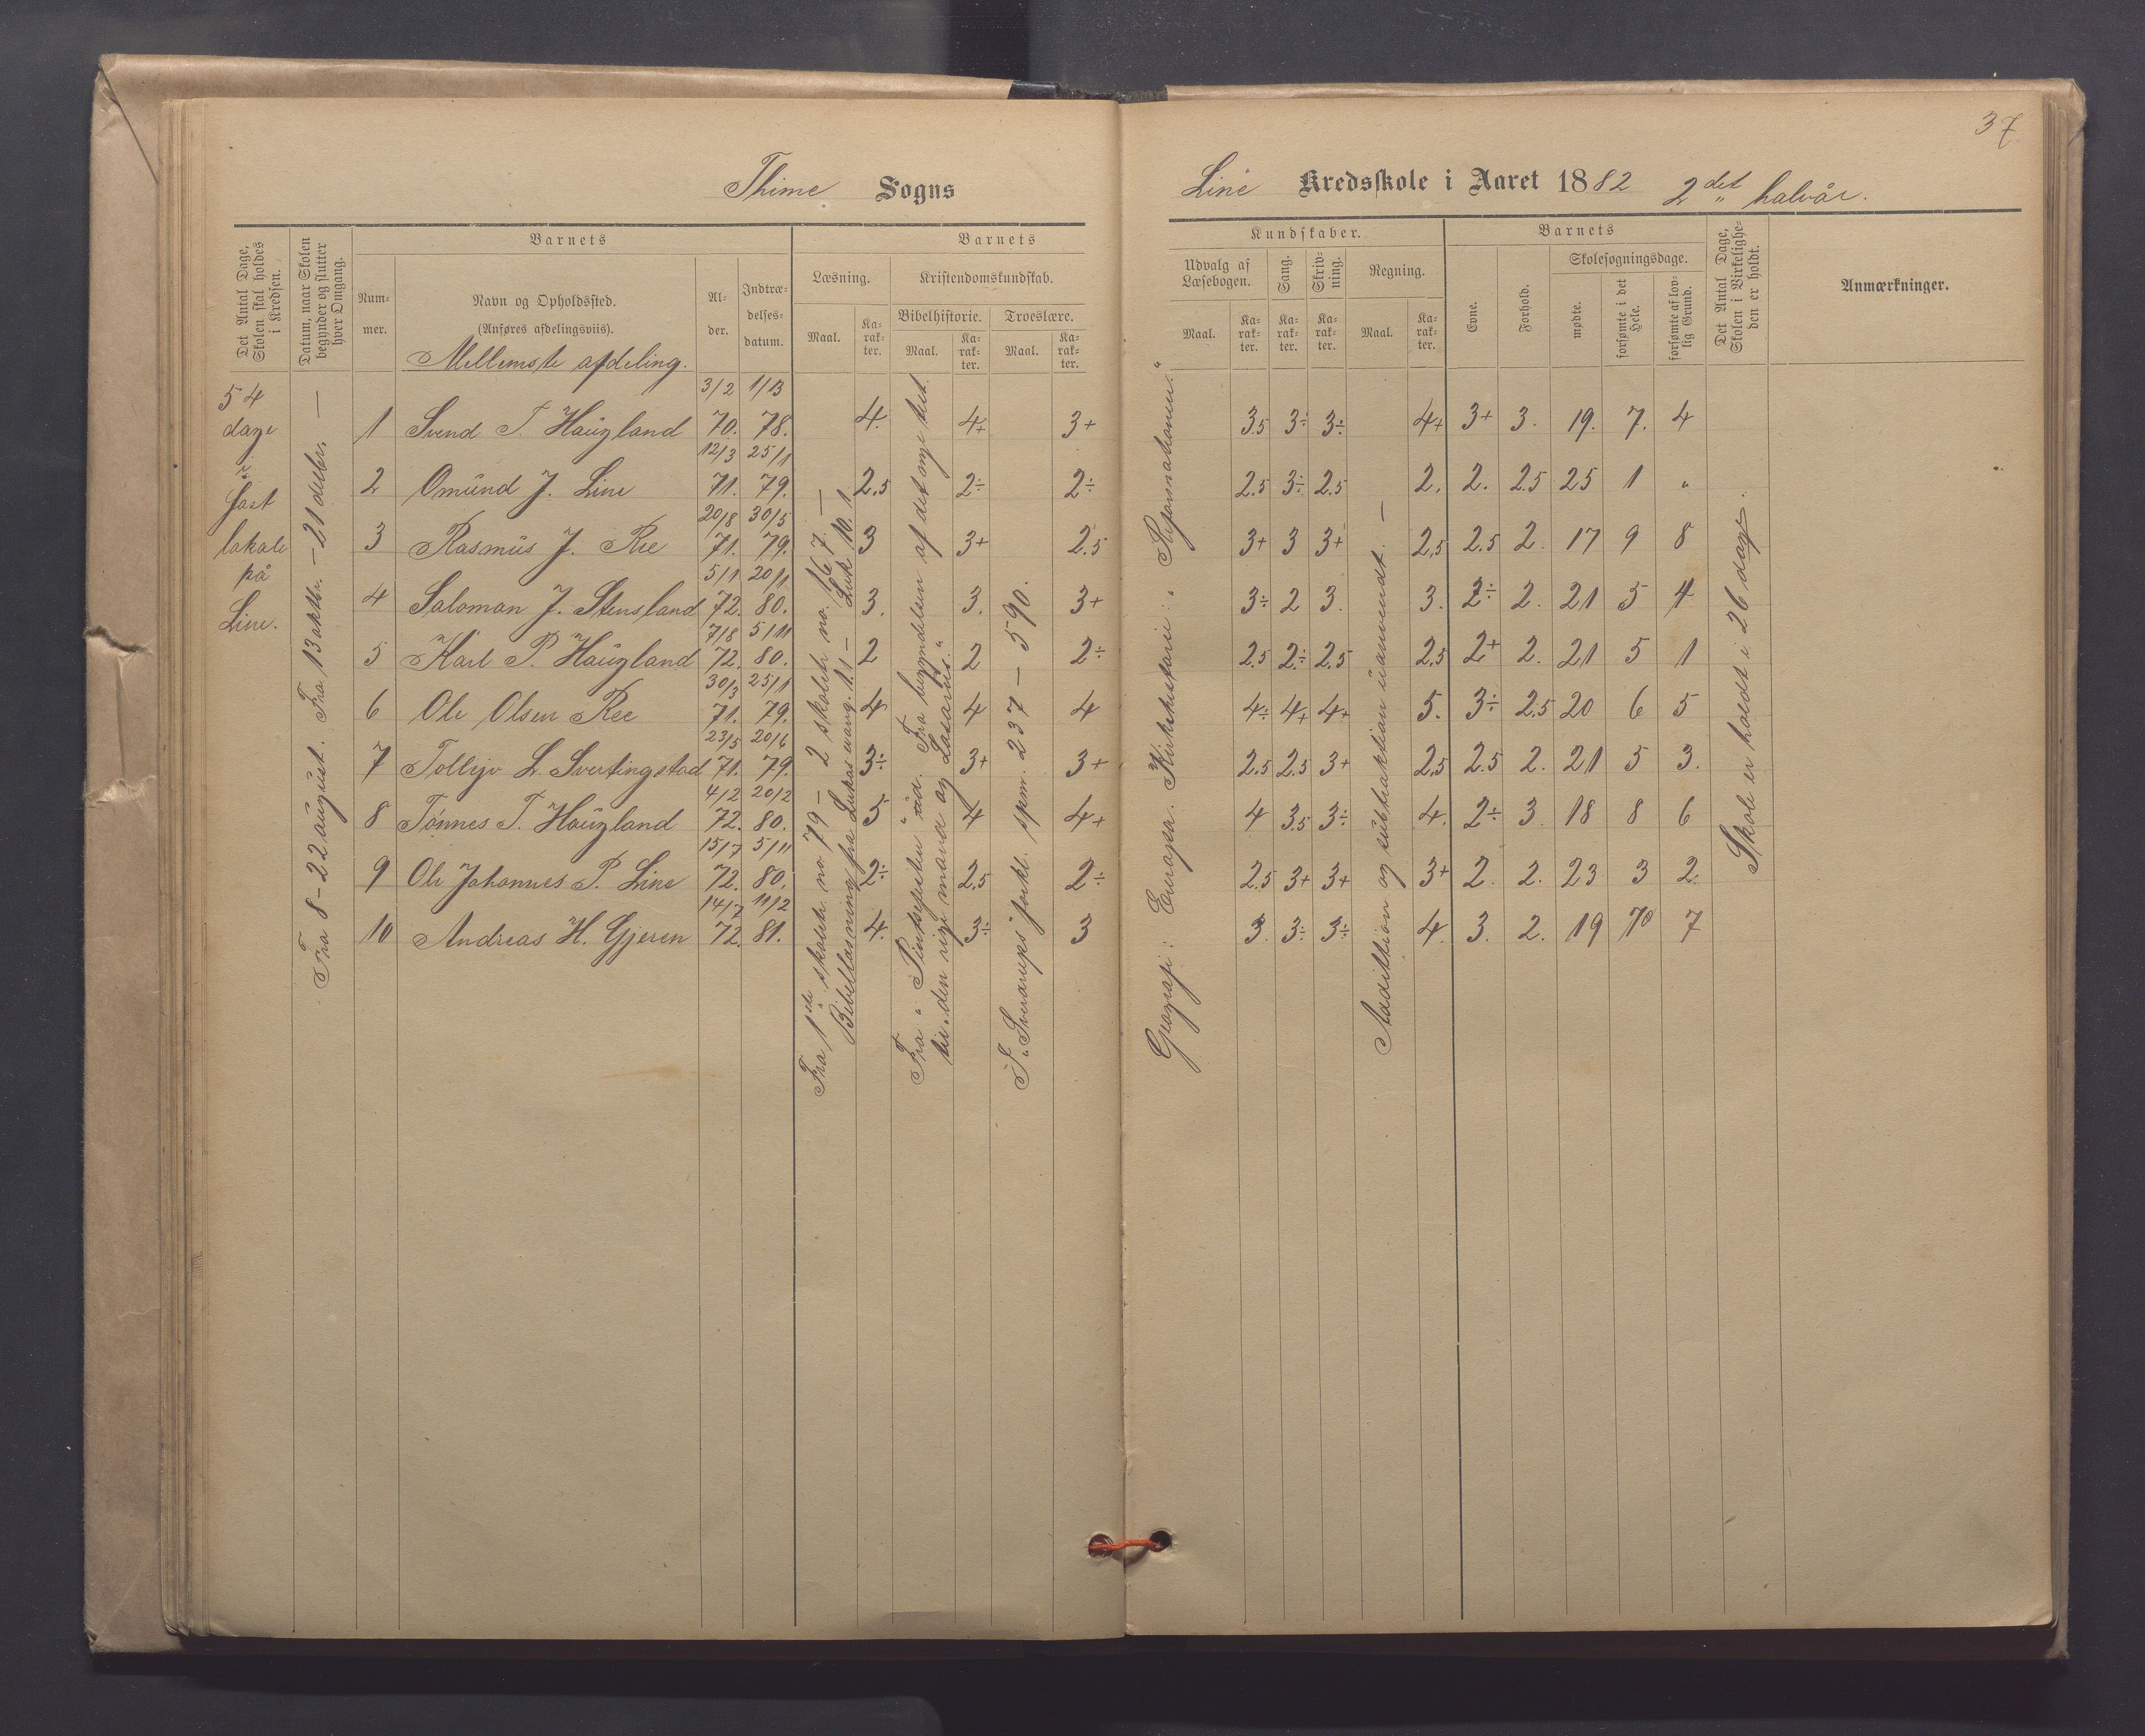 37
Thime Sogns
Line Kredsskole i Aaret 1882 2det halvår.
Det Antal Dage, Skolen skal holdes i Kredsen.
Datum, naar Skolen begynder og slutter hver Omgang.
Barnets
Nummer.
Navn og Opholdssted.
(Anføres afdelingsviis).
Mellemste afdeling.
Alder.
Indtrædelsesdatum.
Barnets
Læsning.
Maal.
Karakter.
Kristendomskundskab.
Bibelhistorie.
Maal.
Karakter.
Troeslære.
Maal.
Karakter.
Kundskaber.
Udvalg af Læsebogen.
Maal.
Karakter.
Sang.
Karakter.
Skrivning.
Karakter.
Regning.
Maal.
Karakter.
Barnets
Evne.
Forhold.
Skolesøgningsdage.
mødte.
forsømte i det Hele.
forsømte af lovlig Grund.
Det Antal Dage, Skolen i Virkeligheden er holdt.
Anmærkninger.
54
dage
i
fast
lokale
på
Line.
Fra 8 – 22 august. Fra 13 oktbr. – 21 debr. –
1 Svend T. Haugland 3/2 70. 1/13 78. 4. 4+ 3+ 3.5 3÷ 3÷ 4+ 3+ 3. 19. 7. 4
2 Omund J. Line 12/3 71. 25/11 79. 2.5 2÷ 2÷ 2.5 3÷ 2.5 2. 2. 2.5 25 1 "
3 Rasmus J. Ree 20/8 71. 30/5 79. 3 3+ 2.5 3+ 3 3+ 2.5 2.5 2. 17 9 8
4 Saloman J. Stensland 5/1 72. 20/11 80. 3. 3. 3+ 3÷ 2 3. 3. 2÷ 2. 21 5 4
5 Karl P. Haugland 7/8 72. 5/11 80. 2 2 2÷ 2.5 2÷ 2.5 2.5 2+ 2. 21 5 1
6 Ole Olsen Ree 30/3 71. 25/11 79. 4 4 4 4÷ 4+ 4+ 5. 3÷ 2.5 20 6 5
7 Tollejv L. Svertingstad 23/5 71. 20/6 79. 3÷ 3+ 3+ 2.5 2.5 3+ 2.5 2.5 2. 21 5 3.
8 Tønnes T. Haugland 4/2 72. 20/2 80. 5 4 4+ 4 3.5 3÷ 4. 2÷ 3. 18 8 6
9 Ole Johannes P. Line 15/7 72. 5/11 80. 2÷ 2.5 2÷ 2.5 3+ 3+ 3+ 2. 2. 23 3 2.
10 Andreas H. Gjeren 14/7 72. 11/2 81. 4. 3÷ 3 3. 3÷ 3÷ 4. 3. 2. 19 70 7
Fra 1ste skoletr. no. 79 – 2 skoletr. no. 167. –
Bibellæsning fra Lukas evang. 1.1 – Luk 10.1.
Fra begyndelsen af det nye test.
til "den rige mand og Lasarus."
Sverdrups forkl. spm. 237 – 590.
Geografi: Europa. Kirkehistorie: "Reformationen."
Addittion og subtraktion uanvendt. –
Skole er holdt i 26 dage.